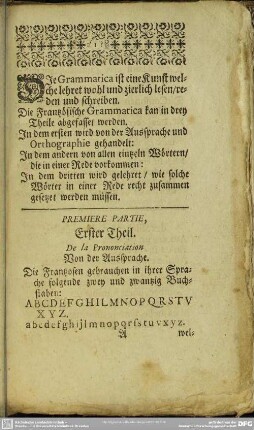 1
DIe Grammatica ist eine Kunst wel-
che lehret wohl und zierlich lesen/re-
den und schreiben.
Die Frantzösische Grammatica kan in drey
Theile abgefasset werden.
In dem ersten wird von der Aussprache und
Orthographie gehandelt:
In dem andern von allen eintzeln Wörtern/
die in einer Rede vorkommen:
In dem dritten wird gelehret/ wie solche
Wörter in einer Rede recht zusammen
gesetzet werden müssen.
PREMIERE PARTIE,
Erster Theil.
De la Prononciation
Von der Aussprache.
Die Frantzosen gebrauchen in ihrer Spra-
che folgende zwey und zwantzig Buch-
staben:
ABCDEFGHILMNOPQRSTV
XYZ.
abcdefghijlmnopqrſstuvxyz.
A wel-
DFG